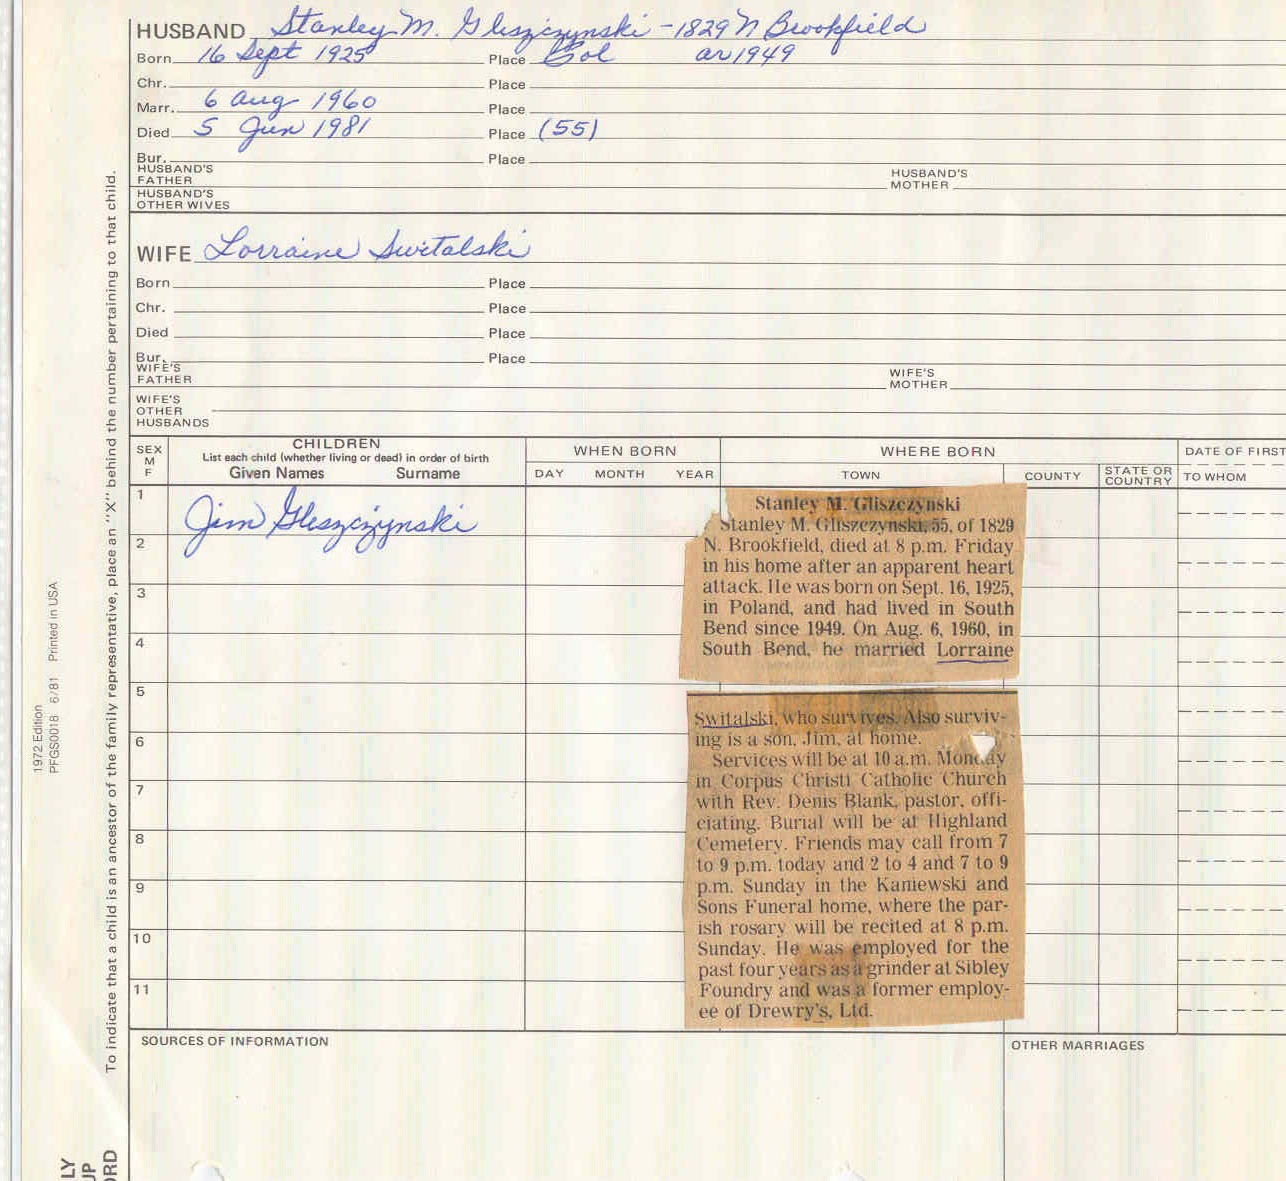 HUSBAND Stanley M. Gliszczynski - 1829 N Brookfield
Born 16 Sept 1925 Place Pol ar 1949
Chr. Place
Marr. 6 Aug 1960 Place
Died 5 Jun 1981 Place (55)
Bur. Place
HUSBAND'S FATHER HUSBAND'S MOTHER
HUSBAND'S OTHER WIVES
WIFE Lorraine Switalski
Born Place
Chr. Place
Died Place
Bur. Place
WIFE'S FATHER WIFE'S MOTHER
WIFE'S OTHER HUSBANDS
SEX M F
CHILDREN
List each child (whether living or dead) in order of birth
Given Names Surname
WHEN BORN
DAY MONTH YEAR
WHERE BORN
TOWN COUNTY STATE OR COUNTRY
DATE OF FIRST
TO WHOM
1 Jim Gliszczynski
2
3
4
5
6
7
8
9
10
11
Stanley M. Gliszczynski
Stanley M. Gliszczynski, 55, of 1829
N. Brookfield, died at 8 p.m. Friday
in his home after an apparent heart
attack. He was born on Sept. 16, 1925,
in Poland, and had lived in South
Bend since 1949. On Aug. 6, 1960, in
South Bend, he married Lorraine
Switalski, who survives. Also surviv-
ing is a son, Jim, at home.
Services will be at 10 a.m. Monday
in Corpus Christi Catholic Church
with Rev. Denis Blank, pastor, offi-
ciating. Burial will be at Highland
Cemetery. Friends may call from 7
to 9 p.m. today and 2 to 4 and 7 to 9
p.m. Sunday in the Kaniewski and
Sons Funeral home, where the par-
ish rosary will be recited at 8 p.m.
Sunday. He was employed for the
past four years as a grinder at Sibley
Foundry and was a former employ-
ee of Drewry's, Ltd.
SOURCES OF INFORMATION
OTHER MARRIAGES
To indicate that a child is an ancestor of the family representative, place an "X" behind the number pertaining to that child.
1972 Edition
PFGS0018 6/81 Printed in USA
LY
UP
ORD